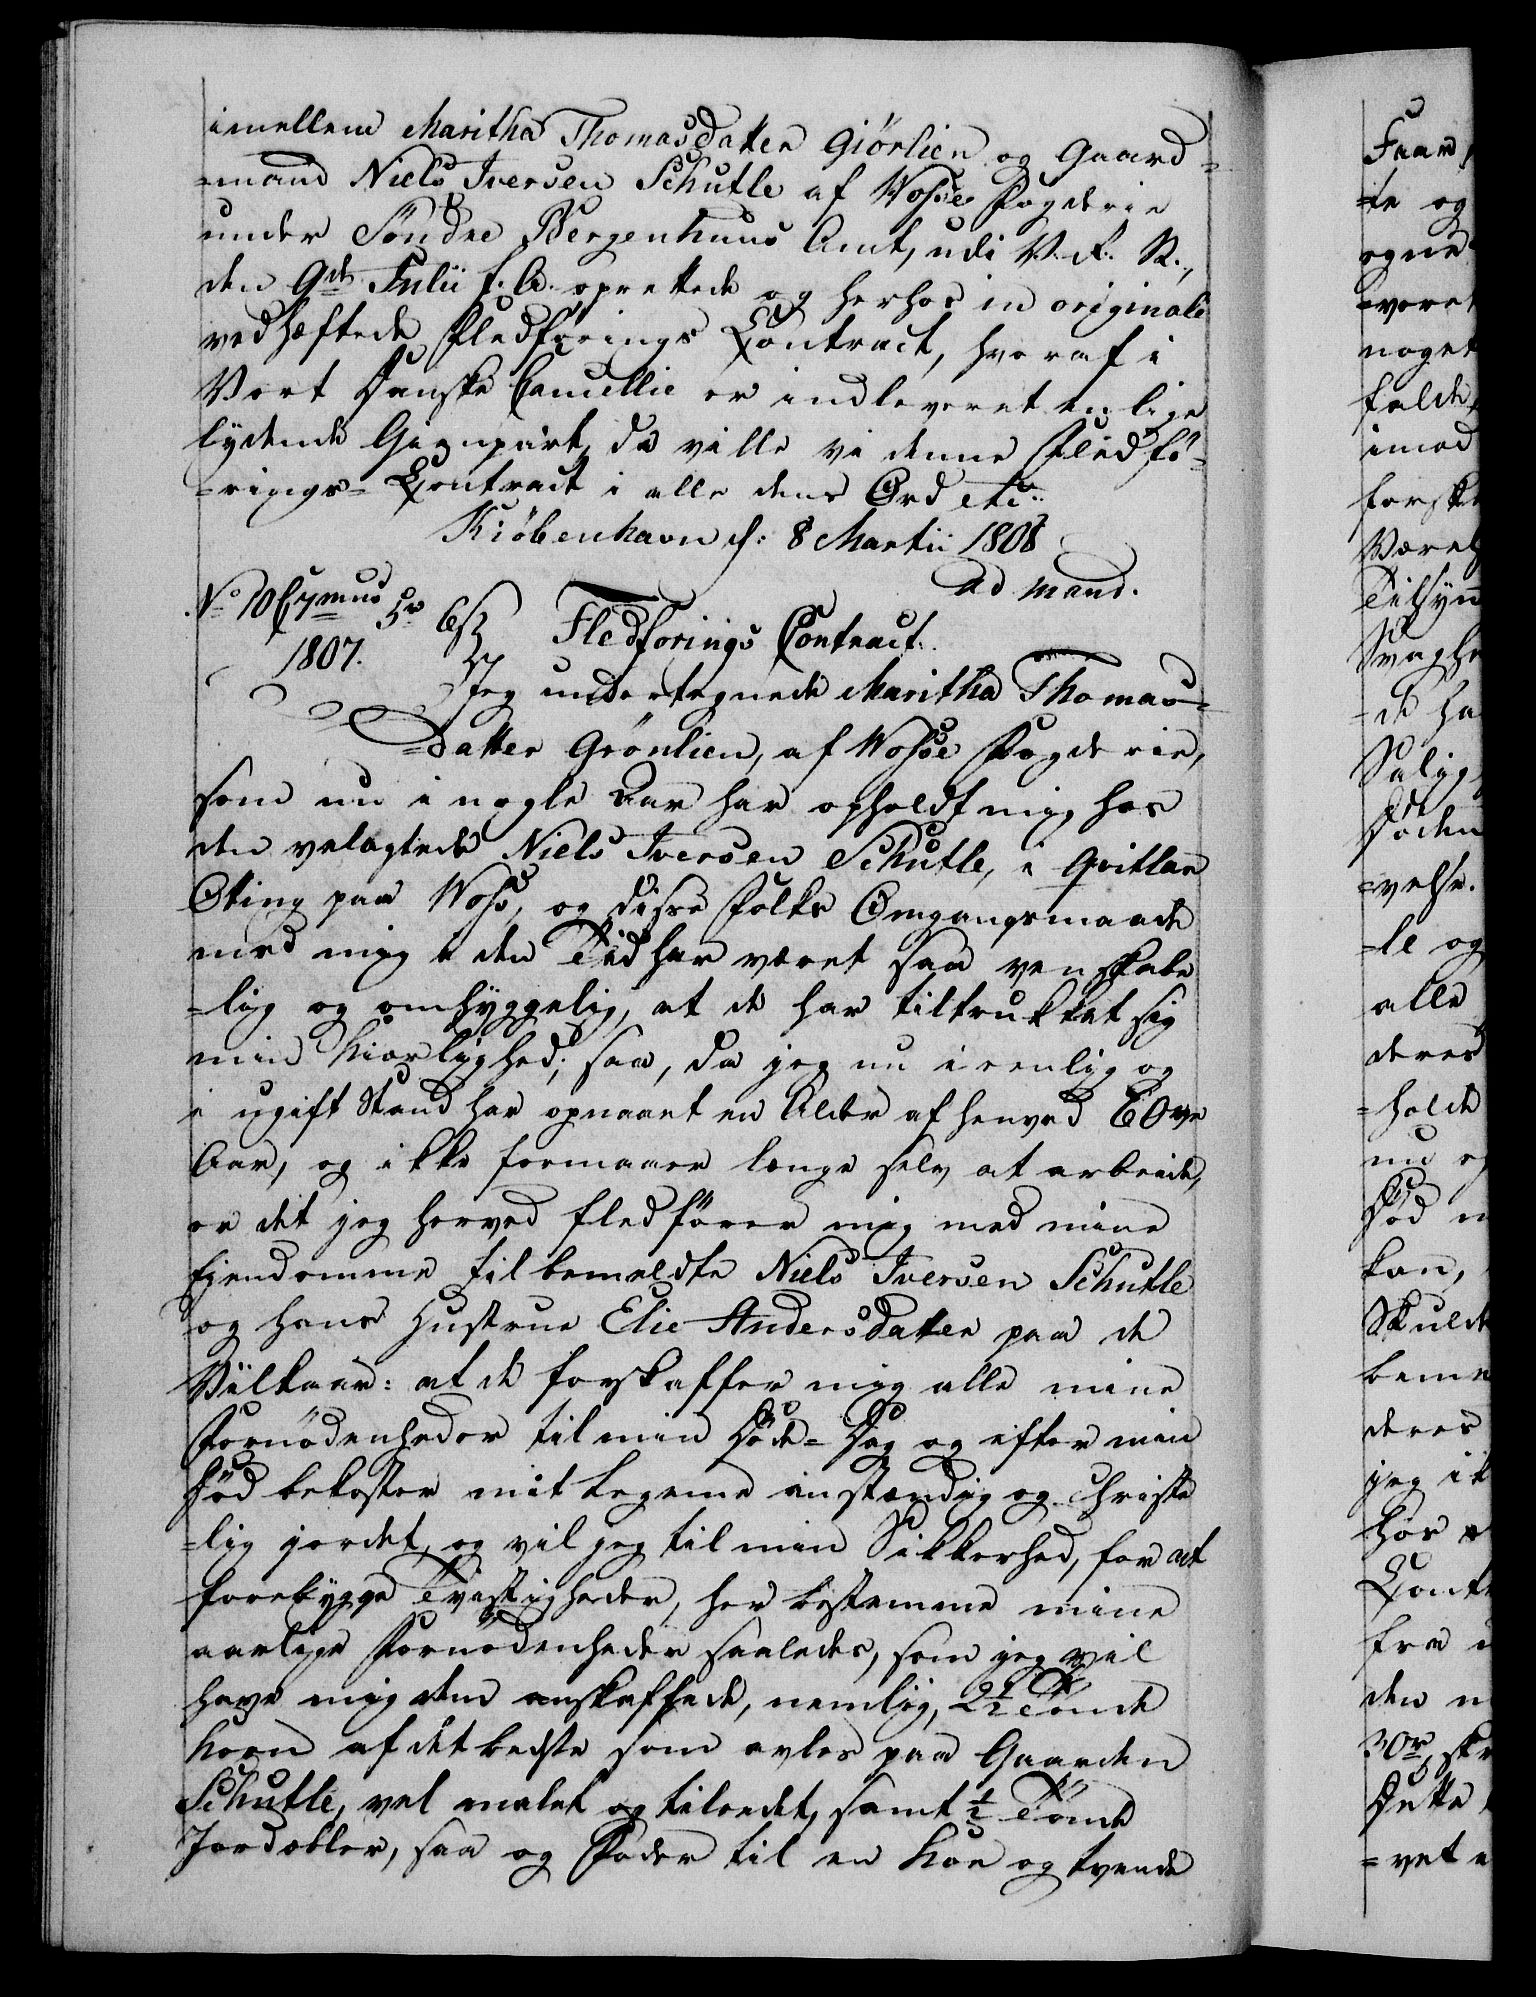 imellem Maritha Thomasdatter Giörlien og Gaard-
=mand Niels Iversen Schutle af Wosse Fogderie
under Söndre Bergenhuus Amt, udi V. R. N.,
den 9de Julii f. A. oprettede og herhos in originali
vedhæftede Fledförings Contract, hvoraf i
Vort Danske Cancellie er indleveret en lige
lydende Gienpart, da ville vi denne Fledfö-
=rings= Contract i alle dens Ord etc:
Kiöbenhavn d: 8 Martii 1808
ad mand.
No 10
1807.
Fledförings Contract.
Jeg undertegnede Maritha Thomas-
=datter Grönlien, af Wosse Fogderie,
som nu i nogle Aar har opholdt mig hos
den velagtede Niels Iversen Schutle, i Qvitlar
Otting paa Woss, og disse Folks Omgangsmaade
med mig i den Tid har været saa venskabe
=lig og omhyggelig, at de har tiltrukket sig
min Kiærlighed; saa, da jeg nu i eenlig og
i ugift Stand har opnaaet en Alder af henved 60ve
Aar, og ikke formaaer længe selv at arbeide,
er det jeg herved fledförer mig med mine
Ejendomme til bemeldte Niels Iversen Schutle
og hans Hustrue Elie Andersdatter paa de
Vilkaar: at de forskaffer mig alle mine
Fornödenheder til min Döde=Dag og efter min
Död bekoster mit Legeme anstændig og Christe
=lig jordet, og vil jeg til min Sikkerhed, for at
forebygge Tvistigheder, her bestemme mine
aarlige Fornödenheder saaledes, som jeg vil
have mig dem anskaffede, nemlig, 2 1/2 Tönde
Korn af det bedste som avles paa Gaarden
Schutle, vel malet og tilredet, samt 1/2 Tönde
Jordæbler, saa og Foder til en Koe og tvende
Faar
=te og
ogne
=veret
noget
falde
imod
forsk
Værel
Tilsyn
Svaghe
=de ha
Salig
Döden
=velse.
=le og
alle
deres
=holde
nu og
Död
kan,
Skulde
beme
deres
jeg ik
hos
Contr
fra
den
30r
Dette
=vet